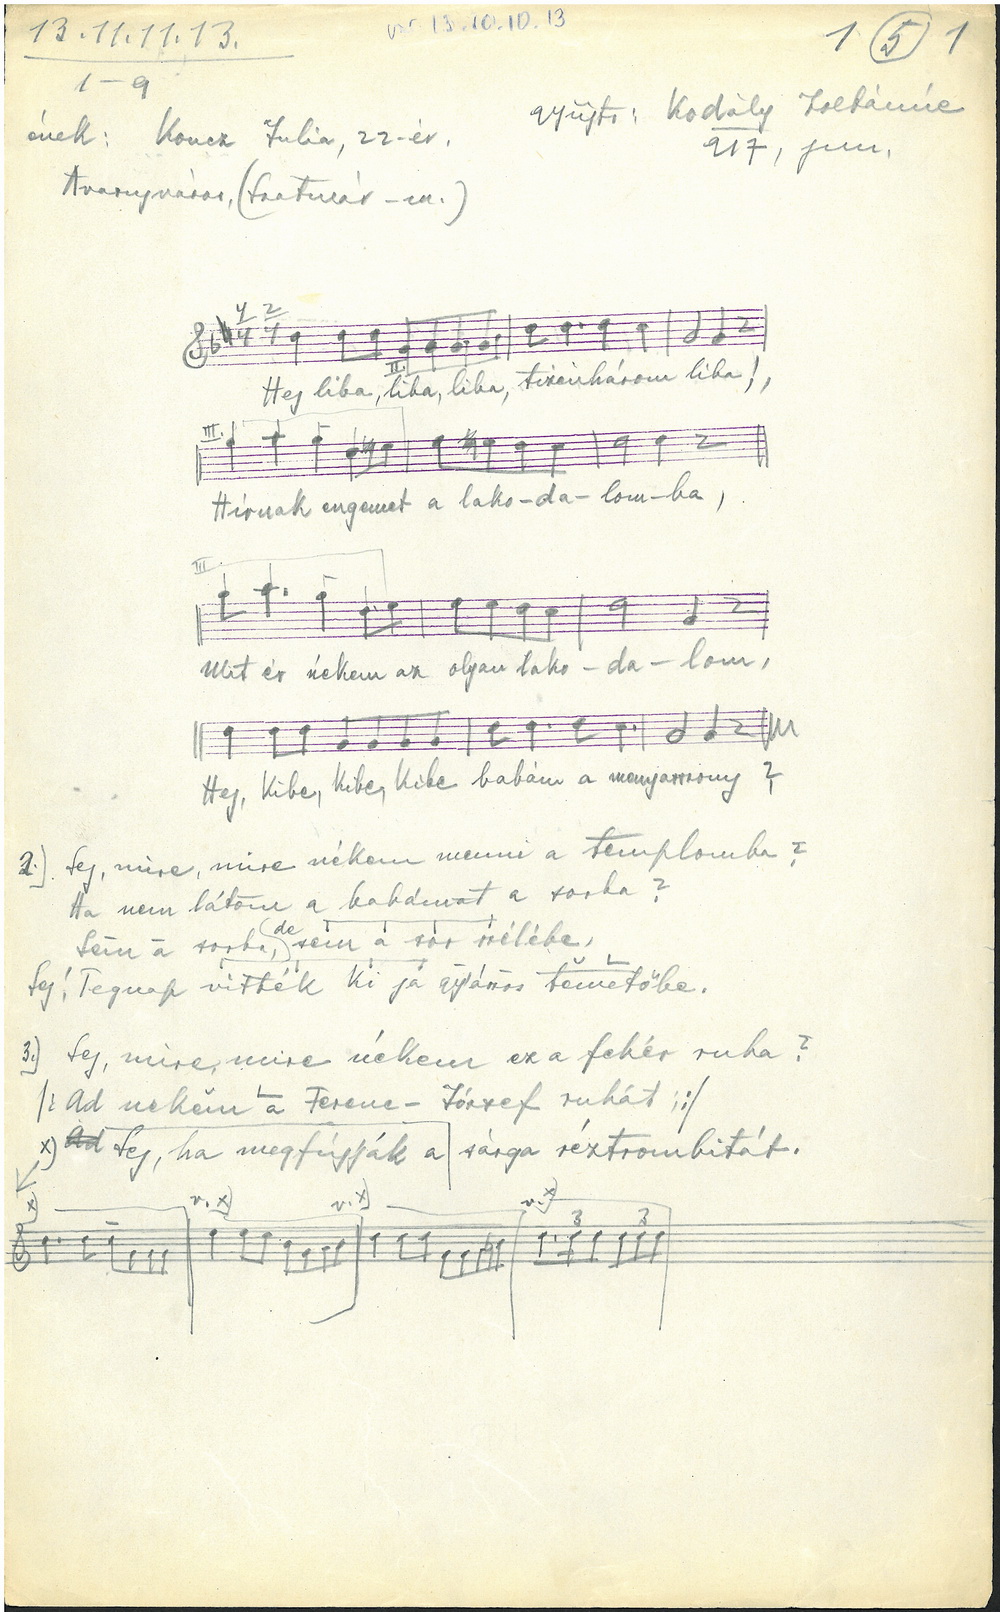 13.11.11.13. 13.10.10.13 1 5 1
1-9
gyűjtő: Kodály Zoltánné
ének: Koncz Julia, 22-év.
917, jun.
Aranyváros, (Szatmár-m.)
4/4 2/4
II.
Hej liba, liba, liba, tizenhárom liba!,
III.
Hívnak engemet a lako-da-lom-ba,
III.
Mit ér nékem az olyan lako-da-lom,
Hej, kibe, kibe, kibe babám a menyasszony?
2.) Sej, mire, mire nékem menni a templomba?
Ha nem látom a babámat a sorba?
Sem a sorba, (de) sem a sor szélébe,
Sej! Tegnap vitték ki já gyászos temetőbe.
3.) Sej, mire, mire nékem ez a fehér ruha?
/: Ad nekem a Ferenc-József ruhát ;:/
x) Sej, ha megfújják a sárga réztrombitát.
x) v. x) v. x) v. x)
3 3